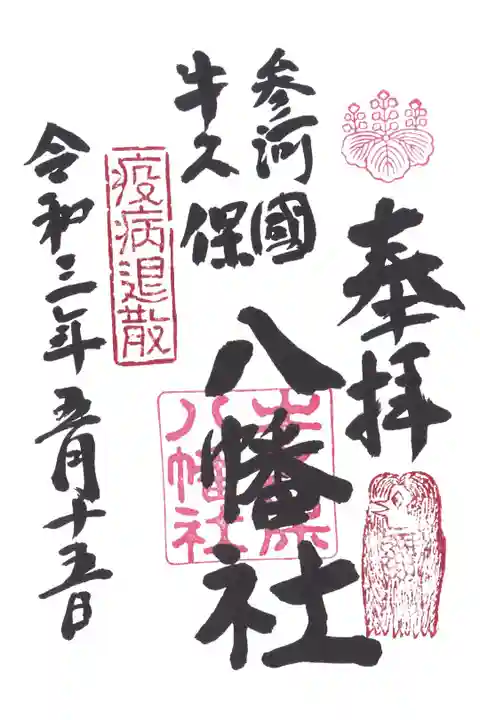 奉拝
参河國
牛久保
八幡社
八幡社
疫病退散
令和三年五月十五日